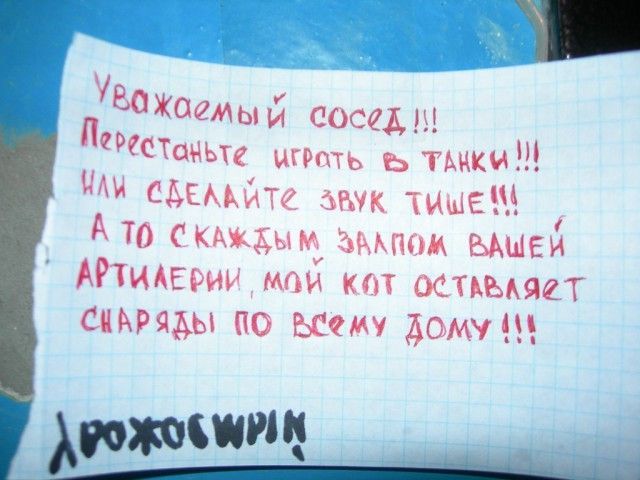 Уважаемый сосед!!!
Перестаньте играть в танки!!!
или сделайте звук тише!!!
А то с каждым залпом вашей
артилерии, мой кот оставляет
снаряды по всему дому!!!